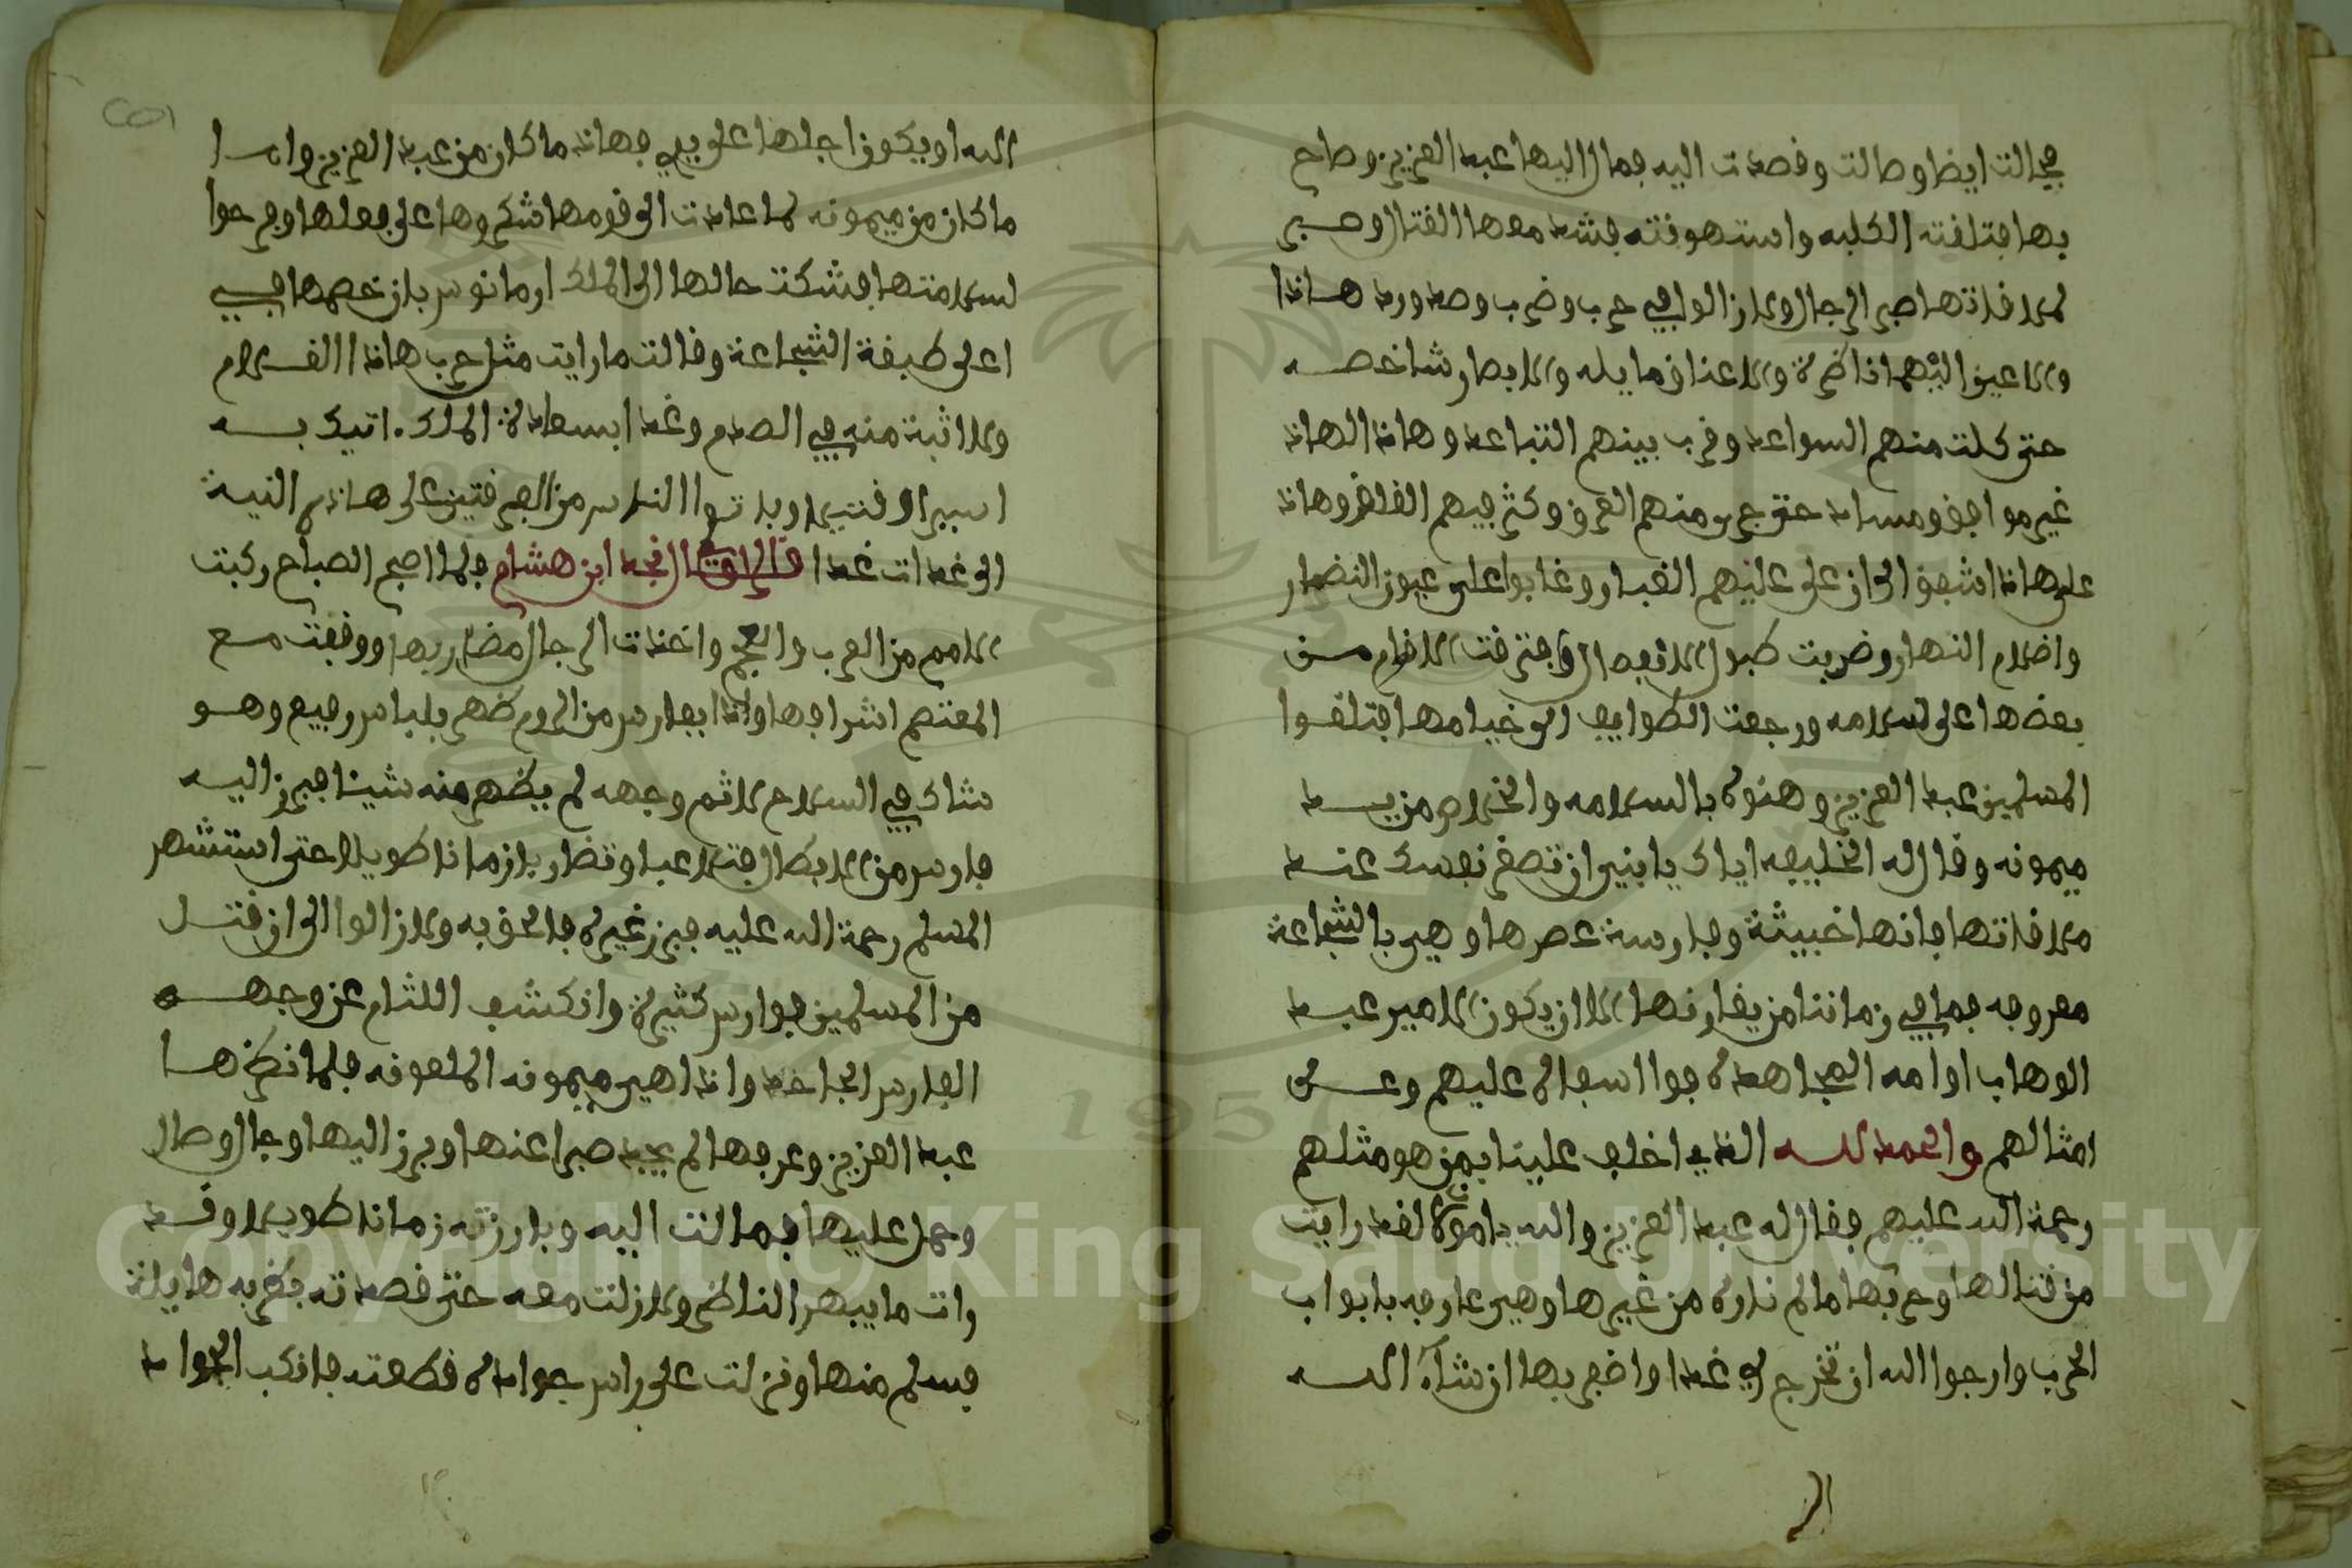 فجالت ايضا وصالت وقصدت اليه فمال اليها عبد العزيز وصاح
بها فتلقته الكلبه واستهونته فشد معها القتال وصبر
لملاقاتها صبر الرجال ولازالوا في حرب وضرب وصد ورد هاذا
والاعين اليهم ناضرة والاعناق مايله والابصار شاخصه
حتى كلت منهم السواعد وقرب بينهم التباعد وهاذا لهاذا
غير موافق ومساعد حتى جرى منهم العرق وكثر فيهم القلق وهاذا
على هاذا اشفق الى ان على عليهم الغبار وغابوا على عيون النضار
واضلام النهار وضربت طبول الانفصال وافترقت الاقوام من
بعضها على سلامه ورجعت الطوايف الى خيامها فتلقوا
المسلمين عبد العزيز وهنوه بالسلامه والخلاص من يد
ميمونه وقال له الخليفه اياك يا بني ان تصغر نفسك عند
ملاقاتها فانها خبيثة وفارسة عصرها وهي بالشجاعة
معروفه فما في زماننا من يقارنها الا ان يكون الامير عبد
الوهاب او امه المجاهده فوا اسفاه عليهم وعلى
امثالهم والحمد لله الذي اخلف علينا بمن هو مثلهم
رحمة الله عليهم فقال له عبد العزيز والله يامولانا لقد رايت
من قتالها وحربها مالم ناره من غيرها وهي عارفه بابواب
الحرب وارجوا الله ان تخرج لي غدا واضفر بها ان شاء الله
الله او يكون اجلها على يدي فهاذا ما كان من عبد العزيز واما
ما كان من ميمونه لما عادت الى قومها شكروها على فعلها وفرحوا
لسلامتها فشكت حالها الى الملك ارمانوس بان خصمها في
اعلى طبقة الشجاعة وقالت ما رايت مثل حرب هاذا الغلام
ولا اثبة منه في الصدم وغدا بسعادة الملك اتيك به
اسيرا او قتيلا وباتوا الناس من الفرقتين على هاذه النية
الى غدات غدا قال الراوي النجد ابن هشام فلما اصبح الصباح ركبت
الامم من العرب والعجم واخذت الرجال مضاربها ووقفت مع
المعتصم اشرافها واذا بفارس من الروم ضهر بلباس رفيع وهو
شاك في السلاح لاثم وجهه لم يضهر منه شيئا فبرز اليه
فارس من الابطال فتلاعبا وتضاربا زمانا طويلا حتى استشهر
المسلم رحمة الله عليه فبرز غيره فالحق به ولا زالوا الى ان قتل
من المسلمين فوارس كثيرة وانكشف اللثام عن وجه
الفارس الجاحد واذا هي ميمونه الملعونه فلما نضرها
عبد العزيز وعرفها لم يجد صبرا عنها وبرز اليها وجال وصال
وحمل عليها فمالت اليه وبارزته زمانا طويلا وقد
رات ما يبهر الناضر ولا زلت معه حتى قصدته بضربه هايلة
فسلم منها ونزلت على راس جواده قطعته فانكب الجواد